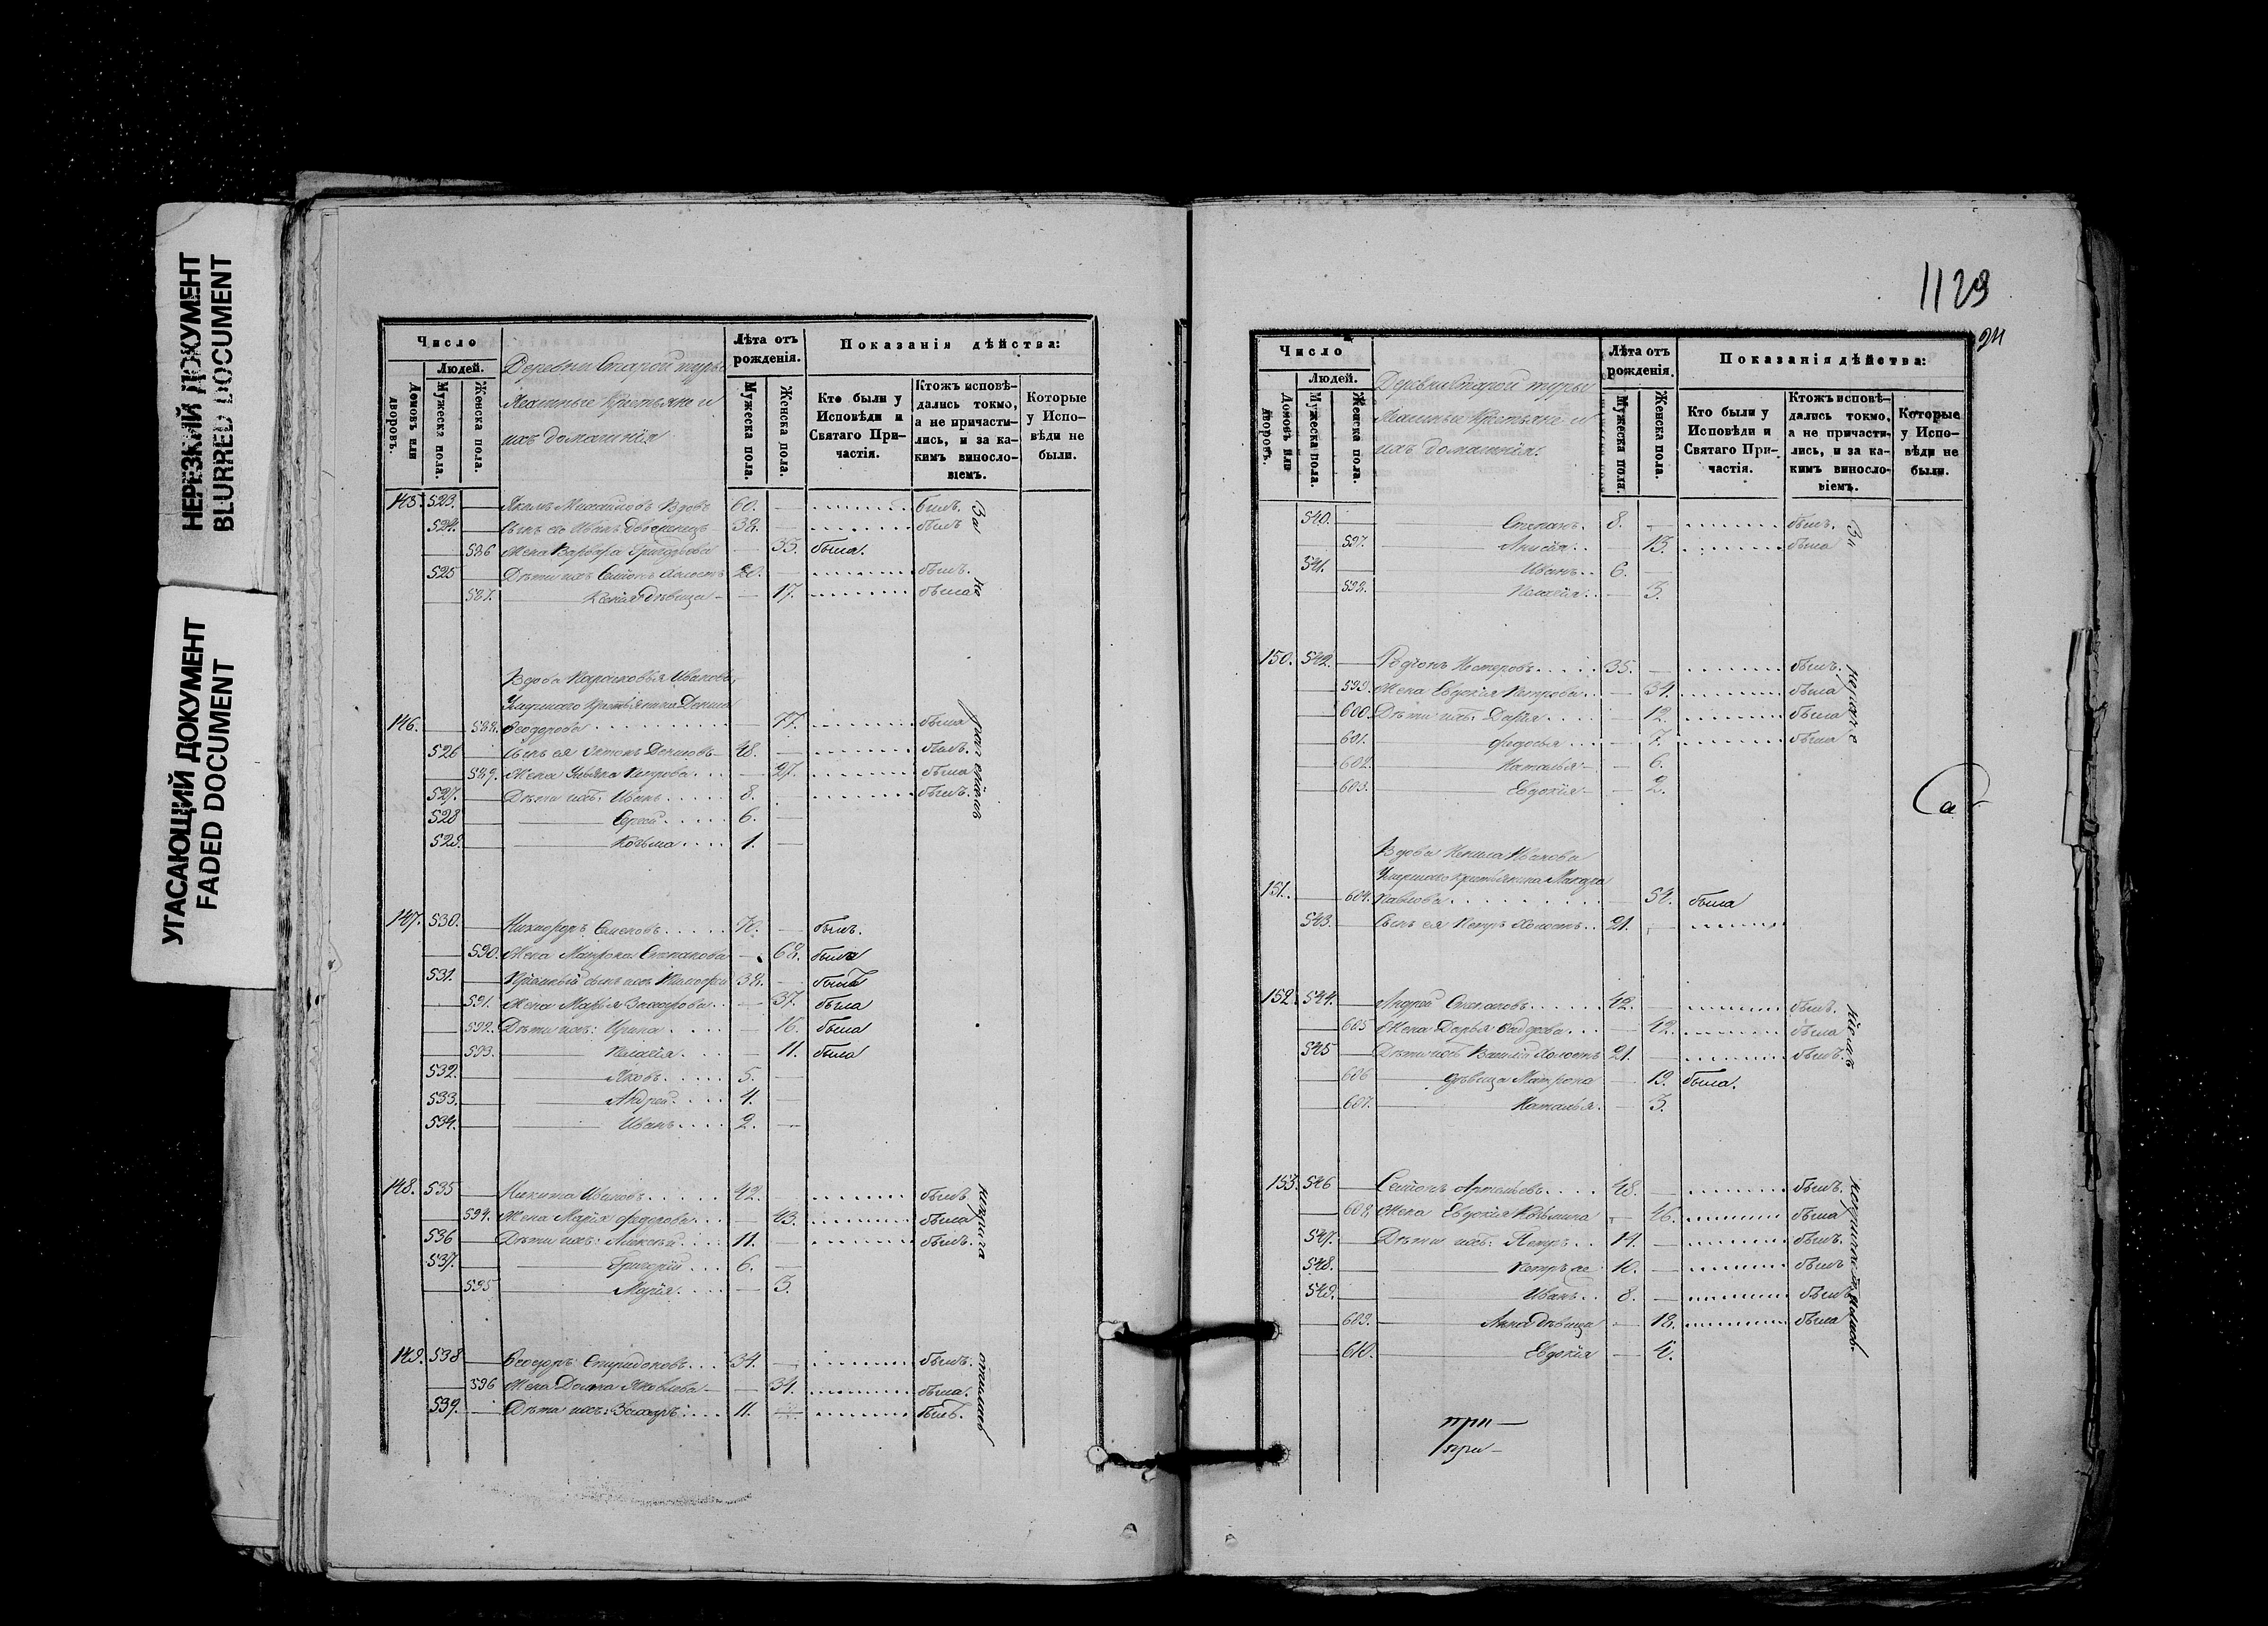 НЕРЕЗКИЙ ДОКУМЕНТ
BLURRED DOCUMENT
УГАСАЮЩИЙ ДОКУМЕНТ
FADED DOCUMENT
Число
Людей.
Домовъ или дворовъ.
Мужеска пола.
Женска пола.
Деревни Старой турьи
Ясашные крестьяне и
ихъ домашнія
Лѣта отъ рожденія.
Мужеска пола.
Женска пола.
Показанія дѣйства:
Кто были у Исповѣди и Святаго Причастія.
Ктожъ исповѣдались токмо, а не причастились, и за какимъ винословіемъ.
Которые у Исповѣди не были.
143. 523. Якимъ Михайловъ Вдовъ 60. былъ.
524. Сынъ его Иванъ 38. былъ
586 Жена Варвара Григорьева 33. была.
525 Дѣти ихъ Семіонъ Холостъ 20. былъ.
587. Ксенія дѣвица 17. была
Вдова Парасковья Иванова,
Умершаго крестьянина Дениса
146. 588. Ѳеодорова 77. была
526 Сынъ ея Антонъ Денисовъ 48. былъ.
589. Жена Ульяна Петрова 27. была
527. Дѣти ихъ: Иванъ 8. былъ.
528 Сергей 6.
529. Козьма 1.
147. 530. Никифоръ Семеновъ 70. былъ.
590. Жена Матрона Степанова 68. была
531. 38. былъ
591. Жена Марья Захарова 37. была
592. Дѣти ихъ: Ирина 16. была
593. Пелагія 11. была
532. Яковъ 5.
533. Андрей 4.
534. Иванъ 2.
148. 535 Никита Ивановъ 42. былъ
594. Жена Марія Федорова 43. была
536 Дѣти ихъ: Алексѣй 11. былъ.
537. Григорій 6.
595 Марія 3.
149. 538 Ѳеодоръ Спиридоновъ 34. былъ.
596 Жена Домна Яковлева 34. была.
539. Дѣти ихъ: Захаръ 11. былъ.
1129
24
Число
Людей.
Домовъ или дворовъ.
Мужеска пола.
Женска пола.
Деревни Старой турьи
Ясашные Крестьяне и
ихъ домашнія.
Лѣта отъ рожденія.
Мужеска пола.
Женска пола.
Показанія дѣйства:
Кто были у Исповѣди и Святаго Причастія.
Ктожъ исповѣдались токмо, а не причастились, и за какимъ винословіемъ.
Которые у Исповѣди не были.
540. Степанъ 8. былъ.
597. Анисія 13. была
541. Иванъ 6.
598. Пелагія 3.
150. 542. Родіонъ Нестеровъ 35. былъ.
599. Жена Евдокія Петрова 34. была
600. Дѣти ихъ: Дарія 12. была
601. Федосья 7. была
602. Наталья 6.
603. Евдокія 2.
Вдова Ненила Иванова
Умершаго крестьянина Макара
151. 604. Павлова 54. была
543. Сынъ ея Петръ Холостъ 21.
152. 544. Андрей Степановъ 42. былъ.
605 Жена Дарья 42. была
545 Дѣти ихъ Василій Холостъ 21. былъ.
606 дѣвица Матрона 19. была.
607. Наталья 3.
153. 546 Семіонъ Артемьевъ 48. былъ.
608 Жена Евдокія Козьмина 46. была
547. Дѣти ихъ: Петръ 14. былъ.
548. Петръ же 10. былъ
549. Иванъ 8. былъ
609. Анна дѣвица 18. была
610. Евдокія 4.